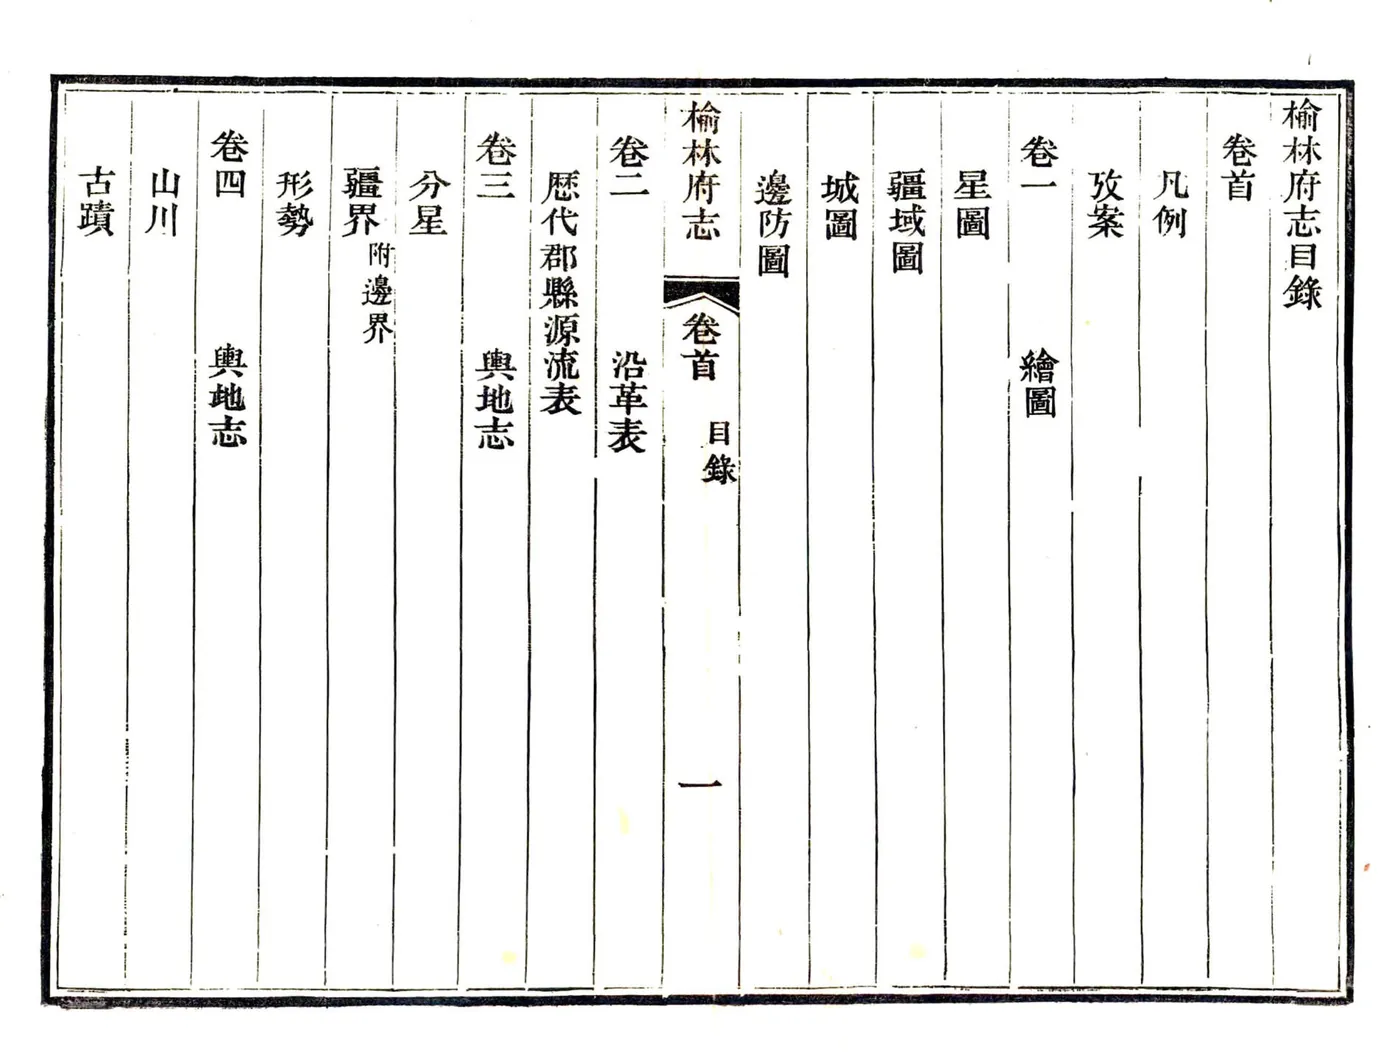 榆林府志目錄
卷首
凡例
攷案
卷一 繪圖
星圖
疆域圖
城圖
邊防圖
榆林府志 卷首 目錄 一
卷二 沿革表
歴代郡縣源流表
卷三 輿地志
分星
疆界 附邊界
形勢
卷四 輿地志
山川
古蹟